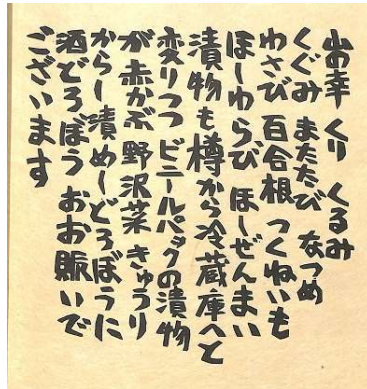 山幸 くり くるみ
くぐみ またたび なつめ
わさび 百合根 つくねいも
ほしわらび ほしぜんまい
漬物も樽から冷蔵庫へと
変りつつ ビニールパックの漬物
が 赤かぶ 野沢菜 きゅうり
からし漬 めしどろぼうに
酒どろぼう おお賑いで
ございます